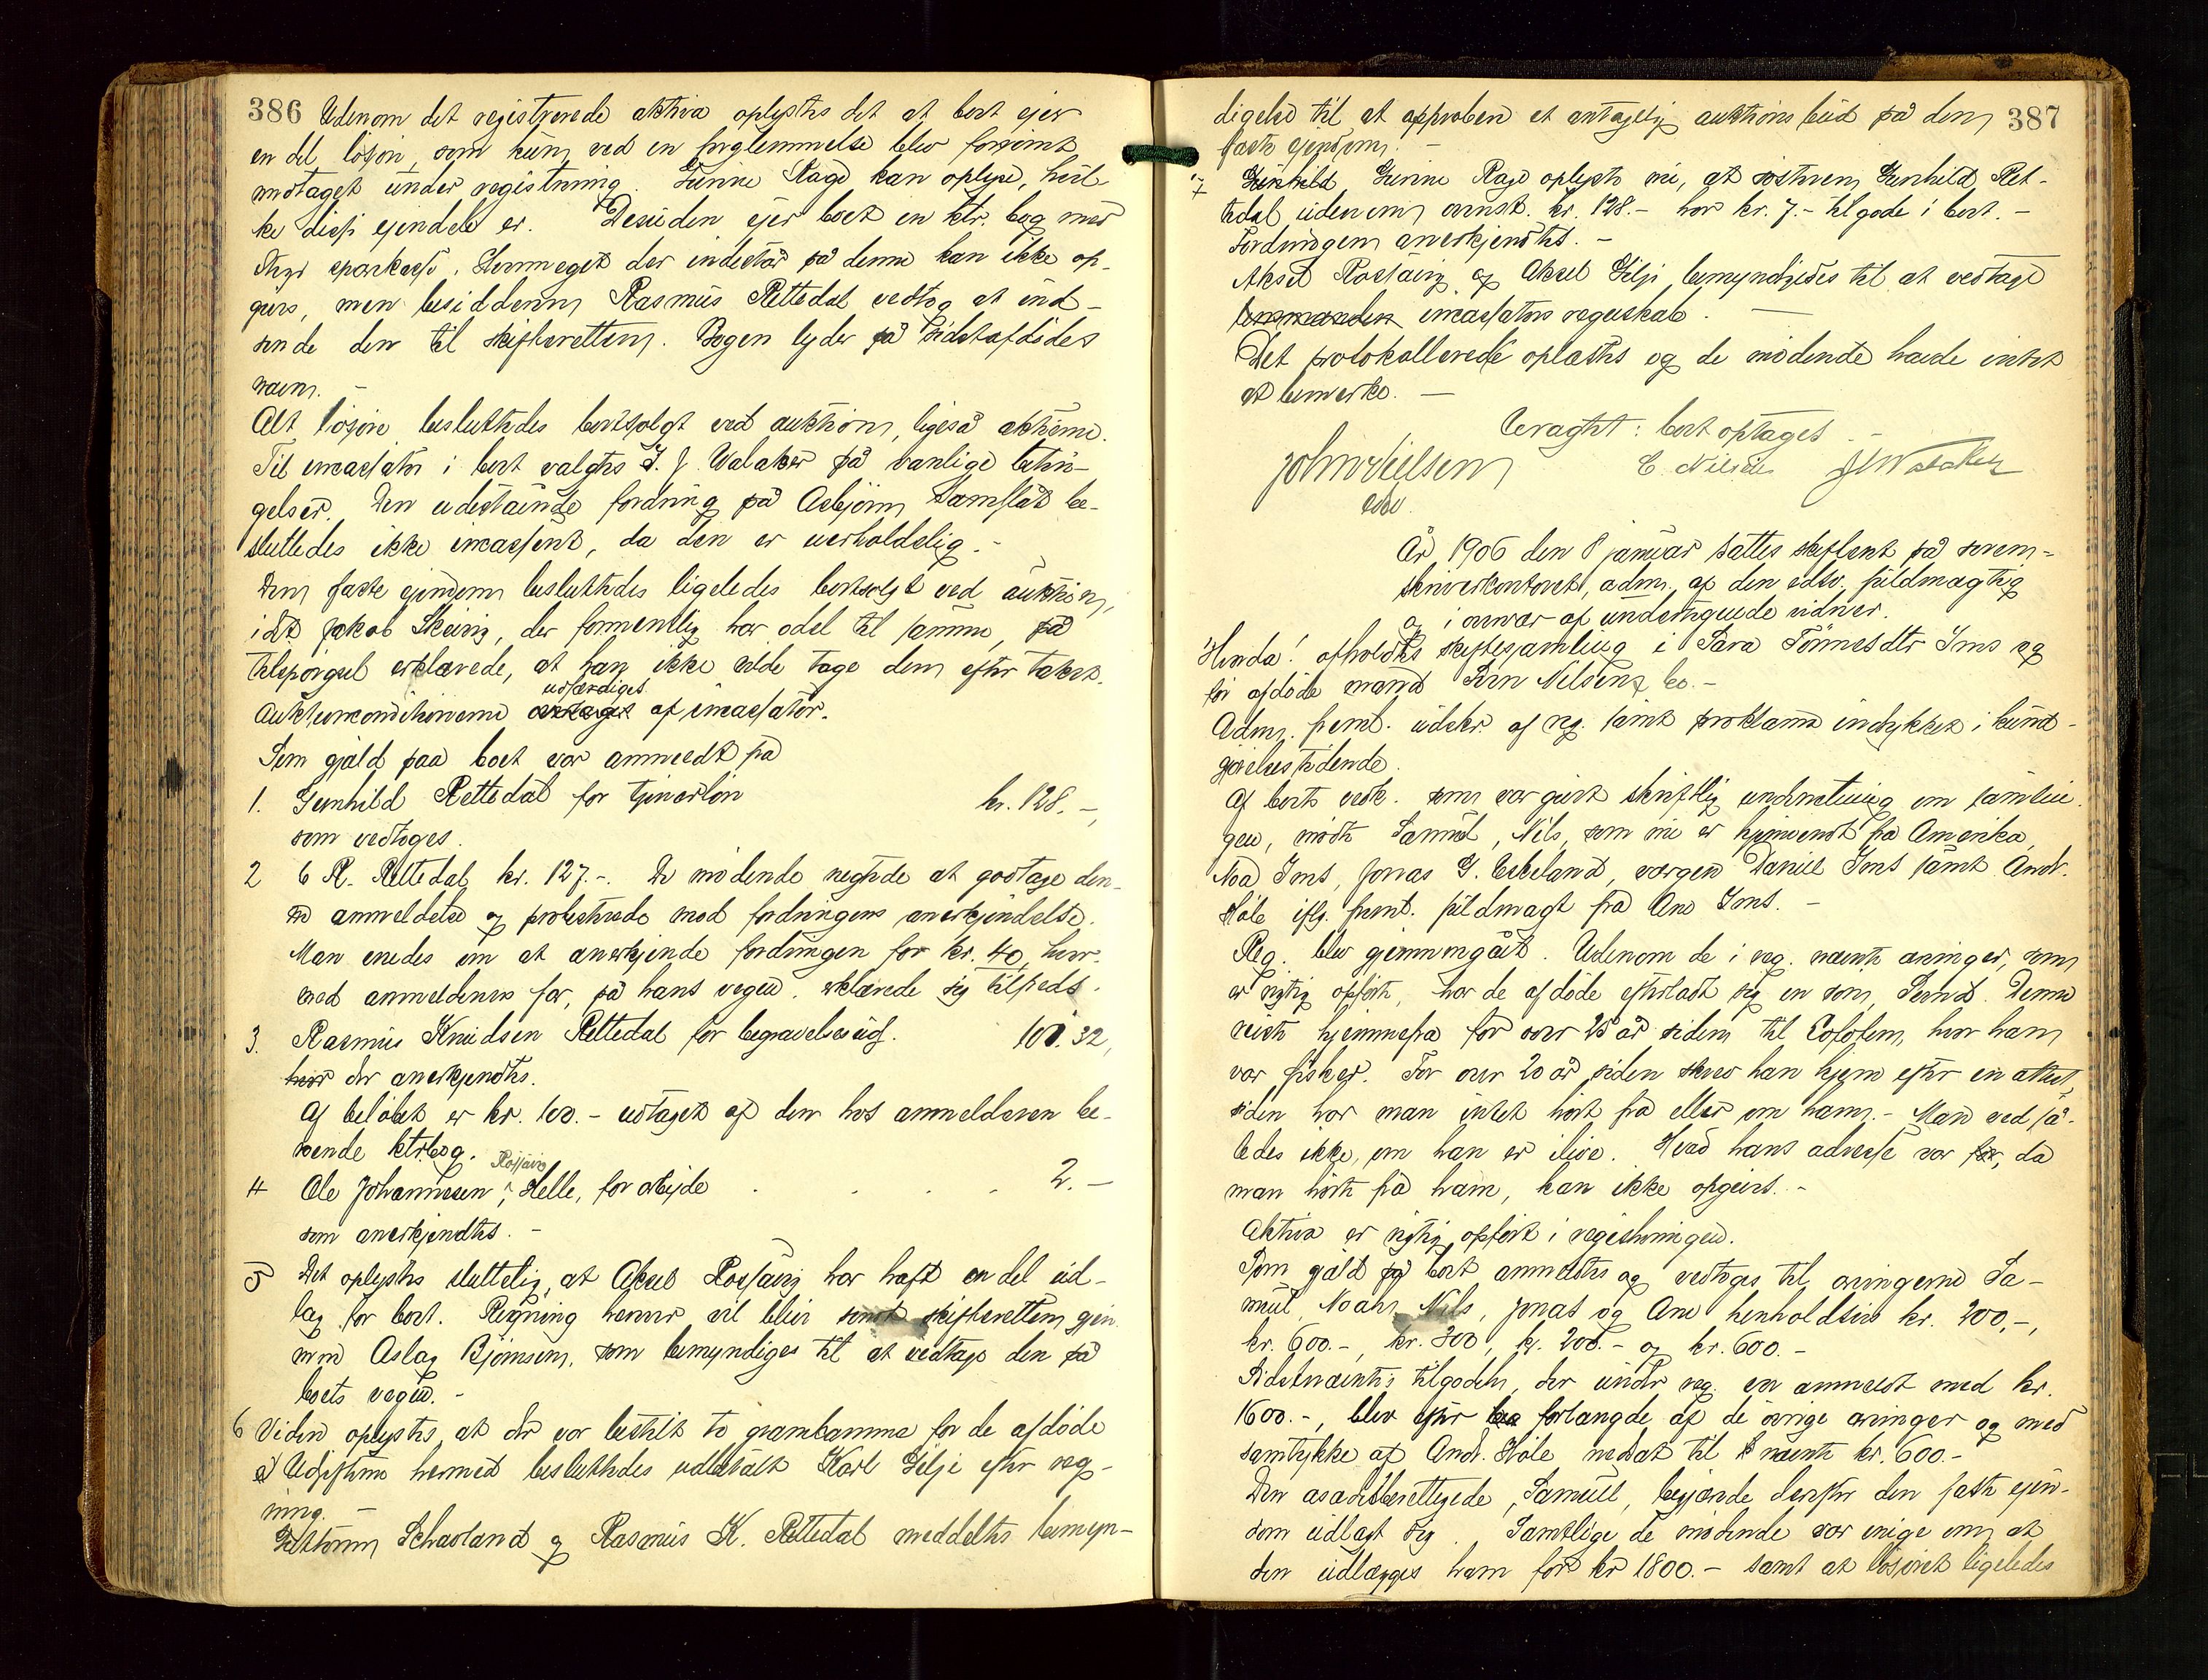 386 Udenom det registrerede aktiva oplystes det at boet ejer
en del løsøre, som kun ved en forglemmelse blev forsømt
mottaget under registrering. Gunne Rage kan oplyse, hvil-
ke disse ejendele er. Desuden ejer boet en ktr. bog med
sparkasse. Hvormeget der indestår på denne kan ikke op-
gives, men besidderen Rasmus Rettedal vedtog at ind-
sende den til skifteretten. Bogen lyder på sidstafdødes
navn. -
Alt løsøre besluttedes bortsolgt ved auktion, ligeså aktierne.
Til incassator i boet valgtes J. J. Walaker på vanlige betin-
gelser. Den udestående fordring på Asbjørn Tamslåt be-
sluttedes ikke incasseret, da den er uerholdelig. -
Den faste ejendom besluttedes ligeledes bortsolgt ved auktion,
idet Jakob Skeiring, der formentlig har odel til samme, på
tilspørgsel erklærede, at han ikke vilde tage den efter takst.
udfærdiges
Auktionsconditionerne af incassator.
Som gjæld paa boet var anmeldt fra
1. Gunhild Rettedal for tjenerløn kr. 128. -,
som vedtoges.
2 C R. Rettedal kr. 127. -. De mødende negtede at godtage den-
ne anmeldelse og protesterede mod fordringens anerkjendelse.
Man enedes om at anerkjende fordringen for kr. 40, hvor-
med anmelderens far, på hans vegne, erklærede sig tilfreds.
3. Rasmus Knudsen Rettedal for begravelsesudg. 101.32,
der anerkjendtes.
Af beløbet er kr. 100. - udtaget af den hos anmelderen be-
roende ktrbog.
Rossavig
4 Ole Johannesen, Helle, for arbejde . . . . 2. -
som anerkjendtes. -
5 Det oplystes sluttelig, at Aksel Rossavig har haft en del ud-
læg for boet. Regning herover vil blive sendt skifteretten gjen-
nem Aslag Bjørnsen, som bemyndiges til at vedtage den på
boets vegne. -
6 Viden oplystes, at der var bestilt to gravkamme for de afdøde
Udgifterne hermed besluttedes udbetalt Karl Gilje efter reg-
ning. -
Guttorm Schavland og Rasmus K. Rettedal meddeltes bemyn-
digelse til at approbere et antagelig auktionsbud på den 387
faste ejendom. -
7 Gunne Rage oplyste nu, at søsteren Gunhild Ret-
tedal udenom anmst. kr. 128. - har kr. 7. - tilgode i boet. -
Fordringen anerkjendtes. -
Aksel Rossavig og Aksel Gilje bemyndigedes til at vedtage
incassators regnskab. -
Det protokollerede oplæstes og de mødende havde intet
at bemerke. -
Eragtet: boet optages. -
John Nielsen C. Nilsen JJWalaker
edv.
År 1906 den 8 januar sattes skifteret på soren-
skriverkontoret, adm. af den edsv. fuldmægtig
og i overvær af undertegnede vidner.
Hvorda! afholdtes skiftesamling i Sara Tönnesdtr Ims og
før afdøde mand Sven Nilsens bo. -
Adm. freml. udskr. af reg. samt proklama indrykket i kund-
gjørelsestidende.
Af boets vedk. som var givet skriftlig underretning om samlin-
gen, mødte Samuel, Nils, som nu er hjemvendt fra Amerika,
Noa Ims, Jonas G. Eikeland, værgen Daniel Ims samt Andr.
Høle iflg. freml. fuldmagt fra Ane Ims. -
Reg. blev gjennemgået. Udenom de i reg. nævnte arvinger, som
er rigtig opført, har de afdøde efterladt sig en søn, Svend. Denne
reiste hjemmefra for over 25 år siden til Lofoten, hvor han
var fisker. For over 20 år siden skrev han hjem efter en attest,
siden har man intet hørt fra eller om ham. - Man ved så-
ledes ikke, om han er ilive. Hvad hans adresse var, da
man hørte fra ham, kan ikke opgives. -
Aktiva er rigtig opført i registreringen.
Som gjæld på boet anmeldtes og vedtoges til arvingerne Sa-
muel, Noah, Nils, Jonas og Ane henholdsvis kr. 200. -,
kr. 600. -, kr. 300, kr. 200. - og kr. 600. -
Sidstnævntes tilgodeh., der under reg. er anmeldt med kr.
1600. -, blev efter forlangde af de øvrige arvinger og med
samtykke af Andr. Høle nedsat til nævnte kr. 600. -
Den åsædesberettigede, Samuel, begjærede derefter den faste ejen-
dom udlagt sig. Samtlige de mødende var enige om at
den udlægges ham for kr 1800. - samt at løsøret ligeledes